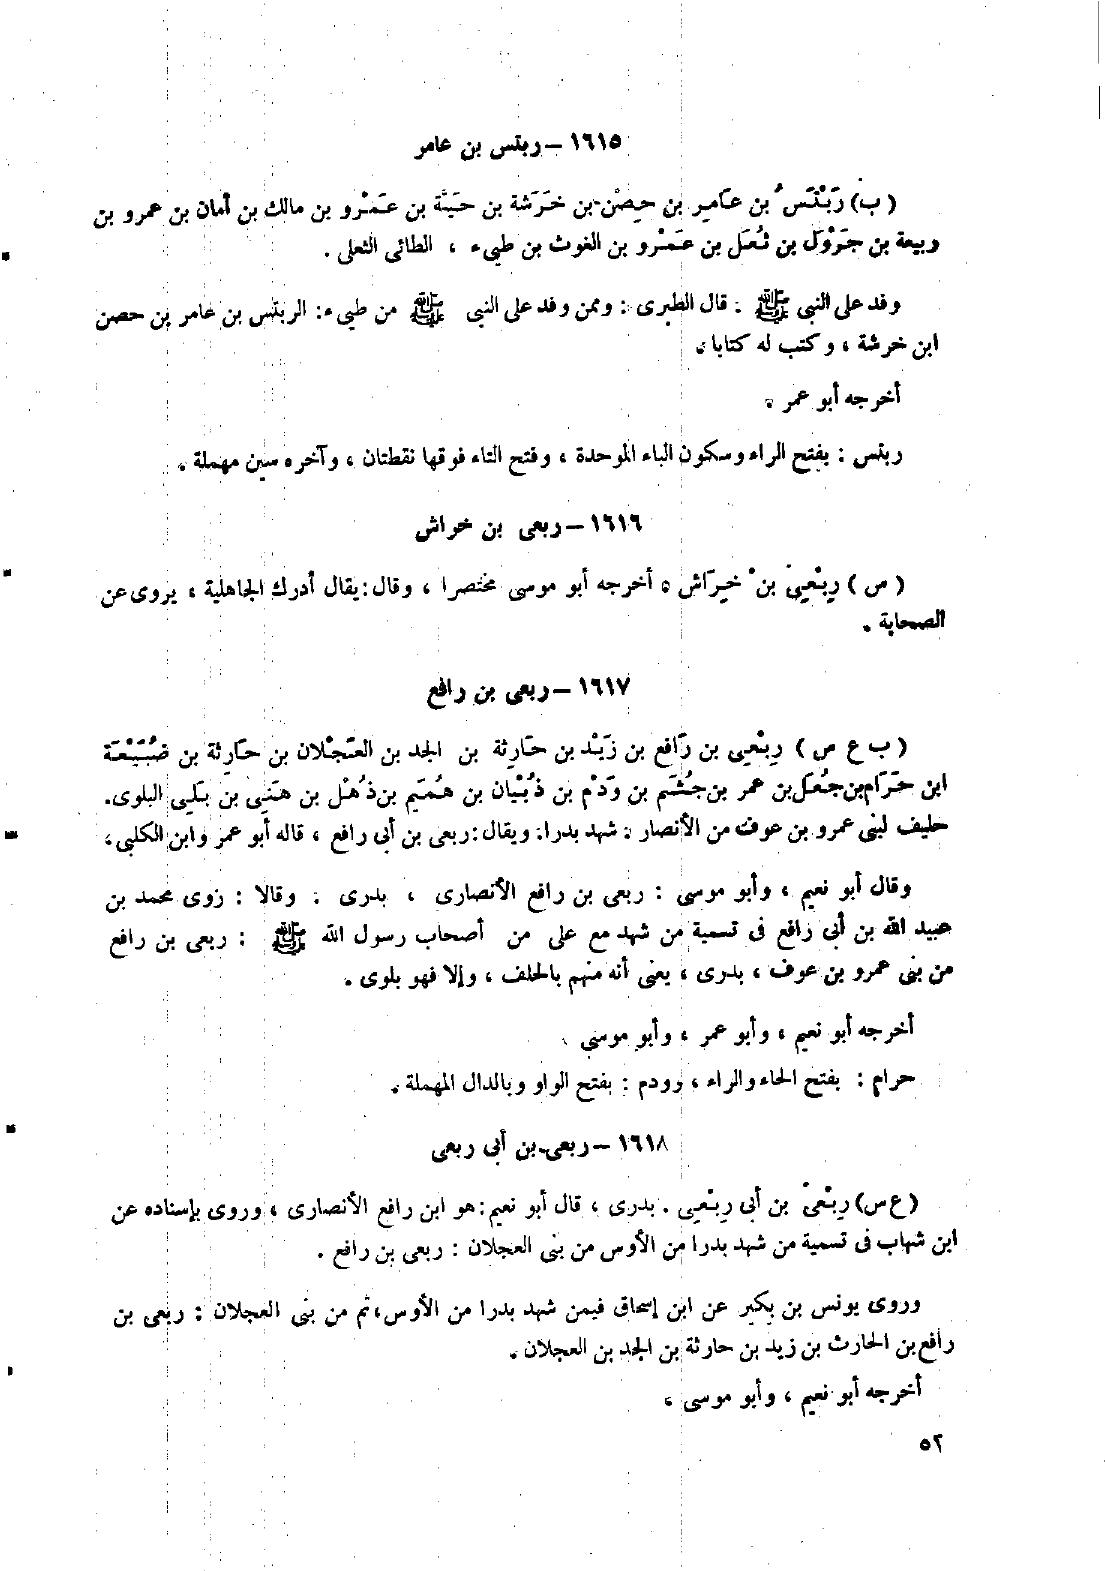 ١٦١٥ – ربتس بن عامر
( ب ) رَبْتَسُ بن عَامِر بن حِصْن بن خَرَشَة بن حَيَّة بن عَمْرو بن مالك بن أمان بن عمرو بن
ربيعة بن جَرْوَل بن ثُعَل بن عَمْرو بن الغوث بن طيىء ، الطائى الثعلى .
وفد على النبى ﷺ . قال الطبرى : وممن وفد على النبى ﷺ من طيىء : الربتس بن عامر بن حصن
ابن خرشة ، وكتب له كتابا .
أخرجه أبو عمر .
ربتس : بفتح الراء وسكون الباء الموحدة ، وفتح التاء فوقها نقطتان ، وآخره سين مهملة .
١٦١٦ – ربعى بن خراش
( س ) رِبْعِيّ بنْ خِرَاش ، أخرجه أبو موسى مختصرا ، وقال : يقال أدرك الجاهلية ، يروى عن
الصحابة .
١٦١٧ – ربعى بن رافع
( ب ع س ) رِبْعِي بن رَافِع بن زَيْد بن حَارِثة بن الجد بن العَجْلان بن حَارِثة بن ضُبَيْعَة
ابن حَرَام بن جُعَل بن عمر بن جُشَم بن وَدْم بن ذُبْيَان بن هُمَيْم بن ذُهْل بن هَنِي بن بَلِي البلوى.
حليف لبنى عمرو بن عوف من الأنصار ، شهد بدرا. ويقال : ربعى بن أبى رافع ، قاله أبو عمر وابن الكلبى ،
وقال أبو نعيم ، وأبو موسى : ربعى بن رافع الأنصارى ، بدرى . وقالا : روى محمد بن
عبيد الله بن أبى رافع فى تسمية من شهد مع على من أصحاب رسول الله ﷺ : ربعى بن رافع
من بنى عمرو بن عوف ، بدرى ، يعنى أنه منهم بالحلف ، وإلا فهو بلوى .
أخرجه أبو نعيم ، وأبو عمر ، وأبو موسى .
حرام : بفتح الحاء والراء ، وودم : بفتح الواو وبالدال المهملة .
١٦١٨ – ربعى بن أبى ربعى
( ع س ) رِبْعىّ بن أبى رِبْعِي . بدرى ، قال أبو نعيم : هو ابن رافع الأنصارى ، وروى بإسناده عن
ابن شهاب فى تسمية من شهد بدرا من الأوس من بنى العجلان : ربعى بن رافع .
وروى يونس بن بكير عن ابن إسحاق فيمن شهد بدرا من الأوس ، ثم من بنى العجلان : ربعى بن
رافع بن الحارث بن زيد بن حارثة بن الجد بن العجلان .
أخرجه أبو نعيم ، وأبو موسى ،
٥٢